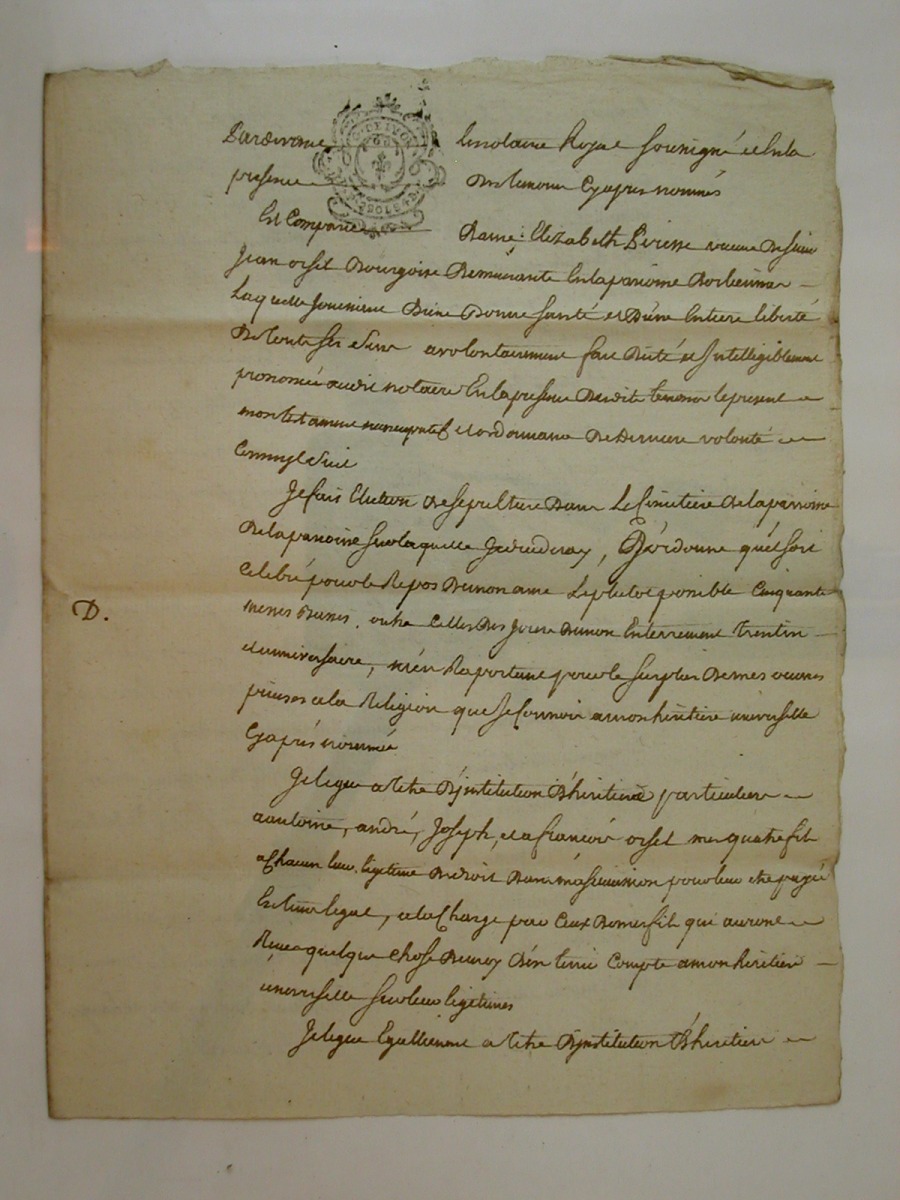 Pardevant Le notaire Royal soussigné et En la
presence Des temoins Cyapres nommés
Est Comparue Dame Elizabeth Perisse veuve De sieur
Jean orsel Bourgoise Demeurante En la paroisse
Laquelle Jouissant D'une Bonne santé et D'une Entiere liberté
De touts ses sens a volontairement fait Dicté et Intelligiblement
prononcé audit notaire En la presence Desdits temoins le present
mon testament nuncupatif et ordonnance De Derniere volonté
Comme s'ensuit
Je fais Election De sepulture Dans Le Cimetiere De la paroisse
De la paroisse sur laquelle Je decederay, Et ordonne qu'il soit
Celebré pour le Repos De mon ame Le plutot possible Cinquante
messes Basses, outre Celles Des Jours De mon Enterrement trentin
et anniversaire, m'en Raportant pour le surplus De mes œuvres
pieuses a la Religion que Je Connois a mon heritiere universelle
Cyaprés nommée
Je legue a titre D'institution D'heritiere particuliere
a antoine, andré, Joseph, et a francois orsel mes quatre fils
a Chacun leur legitime De droit Dans ma succession pour leur etre payée
En leur legal, a la Charge par Ceux De mes fils qui auront
Reçu quelque Chose De moy D'en tenir Compte a mon heritiere
universelle sur leurs legitimes
Je legue Egallement a titre D'institution D'heritiere
D.